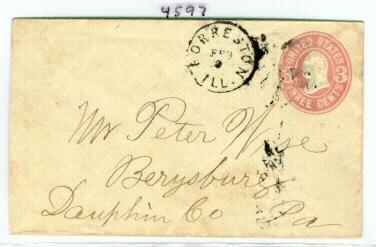 4597
FORRESTON
FEB
9
ILL.
UNITED STATES
THREE CENTS
Mr Peter Wise
Berysburg
Dauphin Co Pa